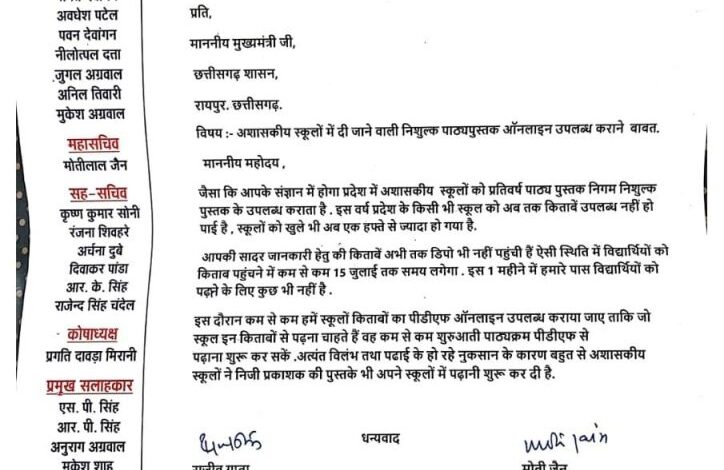 अवधेश पटेल
पवन देवांगन
नीलोत्पल दत्ता
जुगल अग्रवाल
अनिल तिवारी
मुकेश अग्रवाल
महासचिव
मोतीलाल जैन
सह-सचिव
कृष्ण कुमार सोनी
रंजना शिवहरे
अर्चना दुबे
दिवाकर पांडा
आर. के. सिंह
राजेन्द्र सिंह चंदेल
कोषाध्यक्ष
प्रगति दावड़ा मिरानी
प्रमुख सलाहकार
एस. पी. सिंह
आर. पी. सिंह
अनुराग अग्रवाल
मुकेश शाह
प्रति,
माननीय मुख्यमंत्री जी,
छत्तीसगढ़ शासन,
रायपुर. छत्तीसगढ़.
विषय :- अशासकीय स्कूलों में दी जाने वाली निशुल्क पाठ्यपुस्तक ऑनलाइन उपलब्ध कराने बाबत.
माननीय महोदय ,
जैसा कि आपके संज्ञान में होगा प्रदेश में अशासकीय स्कूलों को प्रतिवर्ष पाठ्य पुस्तक निगम निशुल्क
पुस्तक के उपलब्ध कराता है . इस वर्ष प्रदेश के किसी भी स्कूल को अब तक किताबें उपलब्ध नहीं हो
पाई है , स्कूलों को खुले भी अब एक हफ्ते से ज्यादा हो गया है.
आपकी सादर जानकारी हेतु की किताबें अभी तक डिपो भी नहीं पहुंची हैं ऐसी स्थिति में विद्यार्थियों को
किताब पहुंचने में कम से कम 15 जुलाई तक समय लगेगा . इस 1 महीने में हमारे पास विद्यार्थियों को
पढ़ाने के लिए कुछ भी नहीं है .
इस दौरान कम से कम हमें स्कूलों किताबों का पीडीएफ ऑनलाइन उपलब्ध कराया जाए ताकि जो
स्कूल इन किताबों से पढ़ना चाहते हैं वह कम से कम शुरुआती पाठ्यक्रम पीडीएफ से
पढ़ाना शुरू कर सकें .अत्यंत विलंभ तथा पढाई के हो रहे नुकसान के कारण बहुत से अशासकीय
स्कूलों ने निजी प्रकाशक की पुस्तके भी अपने स्कूलों में पढ़ानी शुरू कर दी है.
धन्यवाद
moti jain
मोती जैन